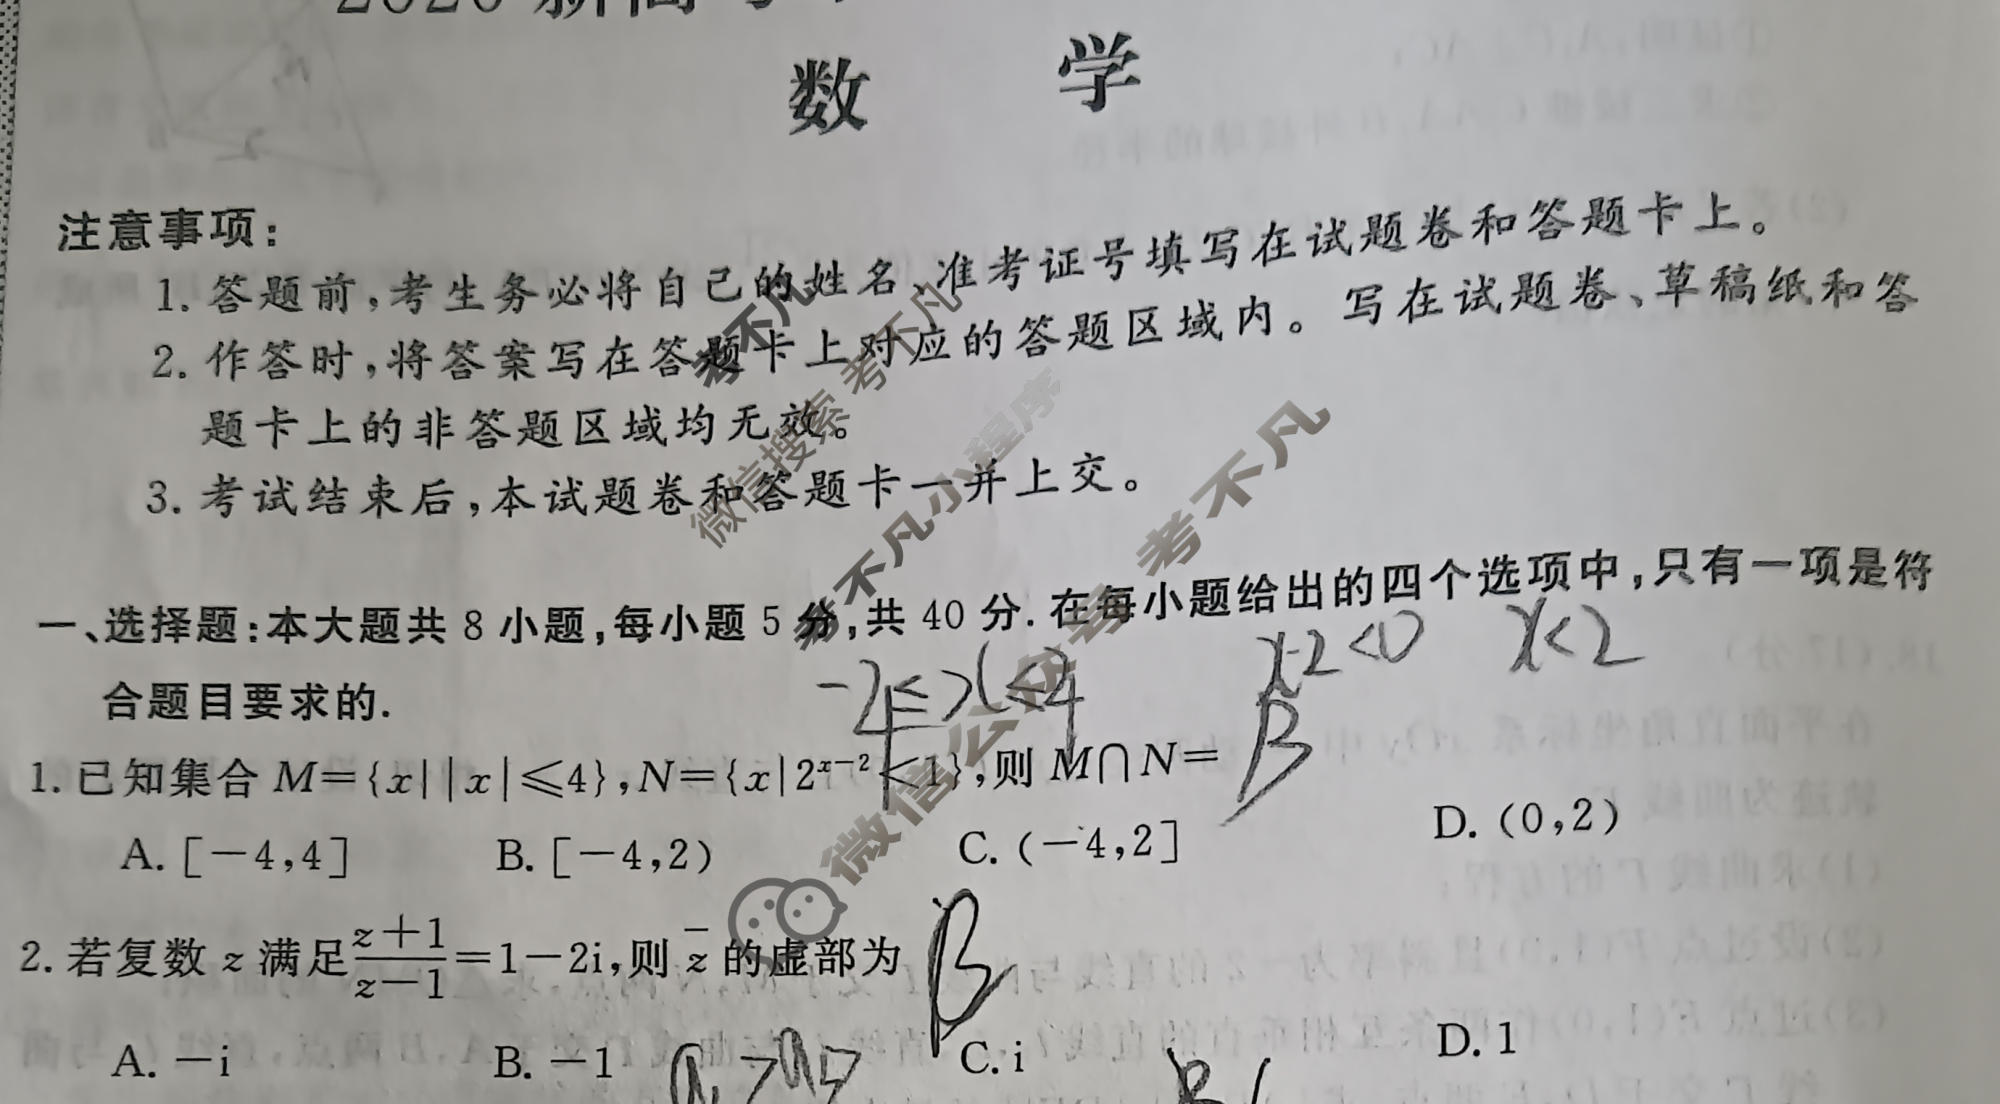 数 学
注意事项:
1. 答题前,考生务必将自己的姓名、准考证号填写在试题卷和答题卡上。
2. 作答时,将答案写在答题卡上对应的答题区域内。写在试题卷、草稿纸和答
题卡上的非答题区域均无效。
3. 考试结束后,本试题卷和答题卡一并上交。
考不凡
微信搜索 考不凡
考不凡小程序
微信公众号 考不凡
一、选择题:本大题共 8 小题,每小题 5 分,共 40 分. 在每小题给出的四个选项中,只有一项是符
合题目要求的.
x-2<0 x<2
1. 已知集合 M={x||x|≤4},N={x|2^{x-2}<1},则 M∩N=
B
A. [-4,4] B. [-4,2) C. (-4,2] D. (0,2)
2. 若复数 z 满足\frac{z+1}{z-1}=1-2i,则 \bar{z} 的虚部为
B
A. -i B. -1 C. i D. 1